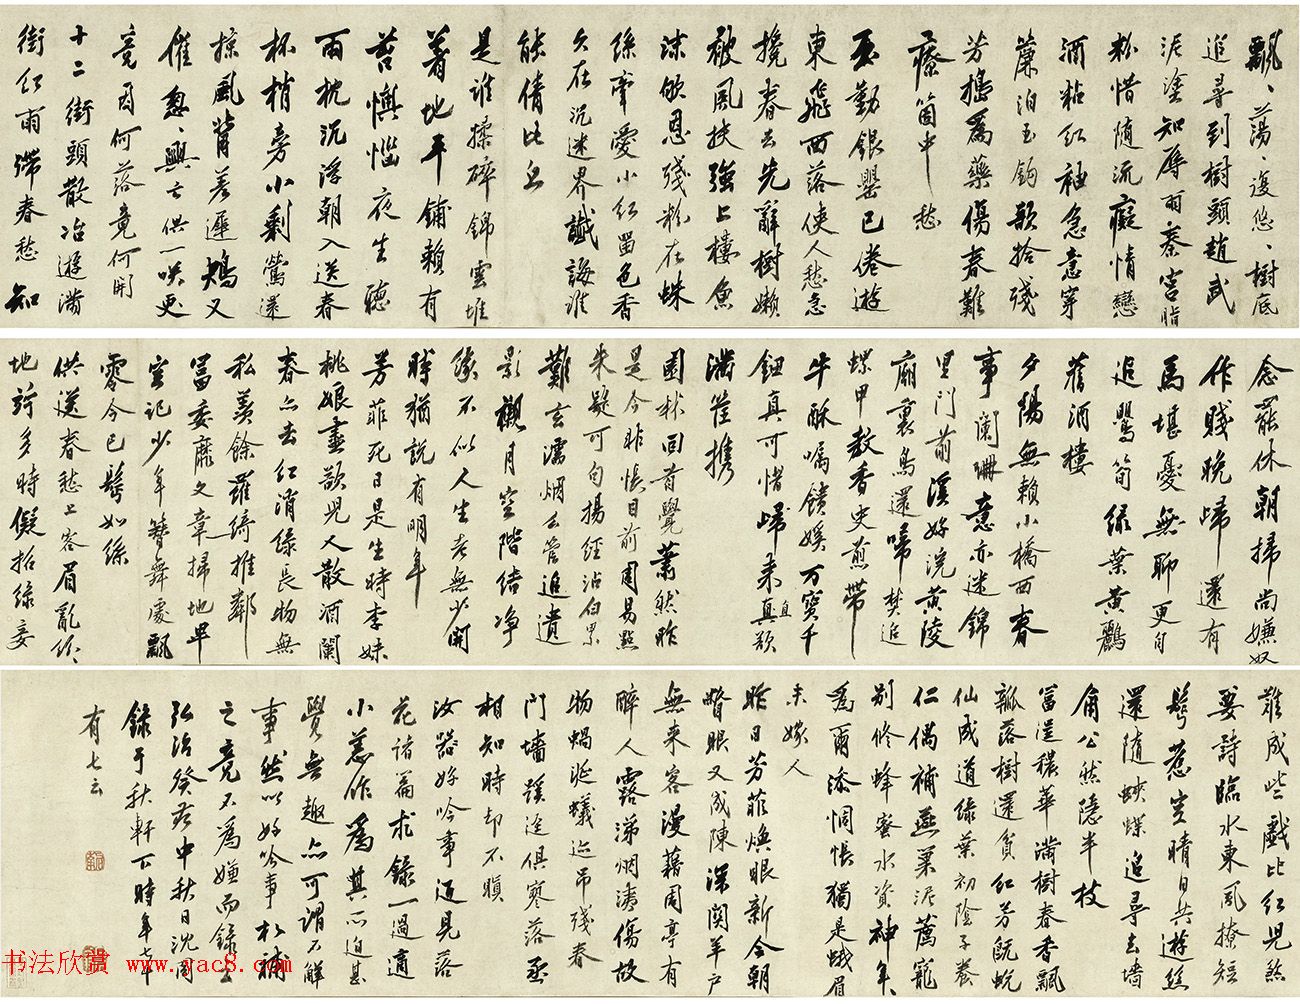 飄、蕩、復悠、樹底
追尋到樹頭趙武
泥塗知辱雨秦宮脂
粉惜隨流癡情戀
酒粘紅袖急意穿
簾泊玉鉤欲拾殘
芳搗為藥傷春難
療箇中愁
玉勤銀罌已倦遊
東飛西落使人愁急
攙春去先辭樹嬾
被風扶強上樓魚
沫欲恩殘粉在蛛
絲牽愛小紅留色香
久在沉迷界懺誨誰
能倩比丘
是誰揉碎錦雲堆
著地平鋪賴有
苔懊惱夜生聽
雨枕沉浮朝入送春
杯梢旁小剩鶯還
掠風背差遲鴆又
催忽、興亡供一咲更
竟因何落竟何開
十二街頭散冶遊滿
街紅雨滯春愁知
念罷休朝掃尚嫌奴
作賤晚歸還有
馬堪憂無聊更自
追鶯筍綠葉黃鸝
舊酒樓
夕陽無賴小橋西春
事闌珊意亦迷錦
里門前溪好浣黃陵
廟裏鳥還啼焚追
螺甲教香史煎帶
牛酥囑饋媛萬寶千
鈿真可惜歸來直欲
滿筐攜
園林回首覺蕭然昨
是今非悵目前周易點
朱疑可句揚經沾白累
難玄濃烟么管追遺
影襯月空階綉淨
緣不似人生老無少開
時猶說有明年
芳菲死日是生時李妹
桃娘盡欲兒人散酒闌
春亦去紅消綠長物無
私羨餘羅綺推鄰
冨委靡文章掃地早
空記少年簪舞處飄
零今已鬢如絲
供送春愁上客眉亂紛、
地許多時儗招綠妾
難成些戲比紅兒煞
要詩臨水東風撩短
鬢惹空晴日共遊絲
還隨蛺蝶追尋去墻
角公然隱半枝
富逞穠華滿樹春香飄
瓢落樹還貧紅芳既蛻
仙成道綠葉初陰子養
仁偶補燕巢泥薦寵
別修蜂蜜水資神年、
為爾添惆悵獨是蛾眉
未嫁人
昨日芳菲煥眼新今朝
瞥眼又成陳深關羊戶
無來客漫藉周亭有
醉人露涕烟洟傷故
物蝸涎蟻迹吊殘春
門墻蹊逕俱寥落丞
相知時却不瞋
汝器好吟事迺見落
花諸篇求錄一過適
小恙作為其所迫甚
覺無趣亦可謂不解
事然以好吟事於補
之竟不為嫌而錄之
弘治癸亥中秋日沈周
錄于秋軒下時年七十
有七云
书法欣赏 www.yac8.com